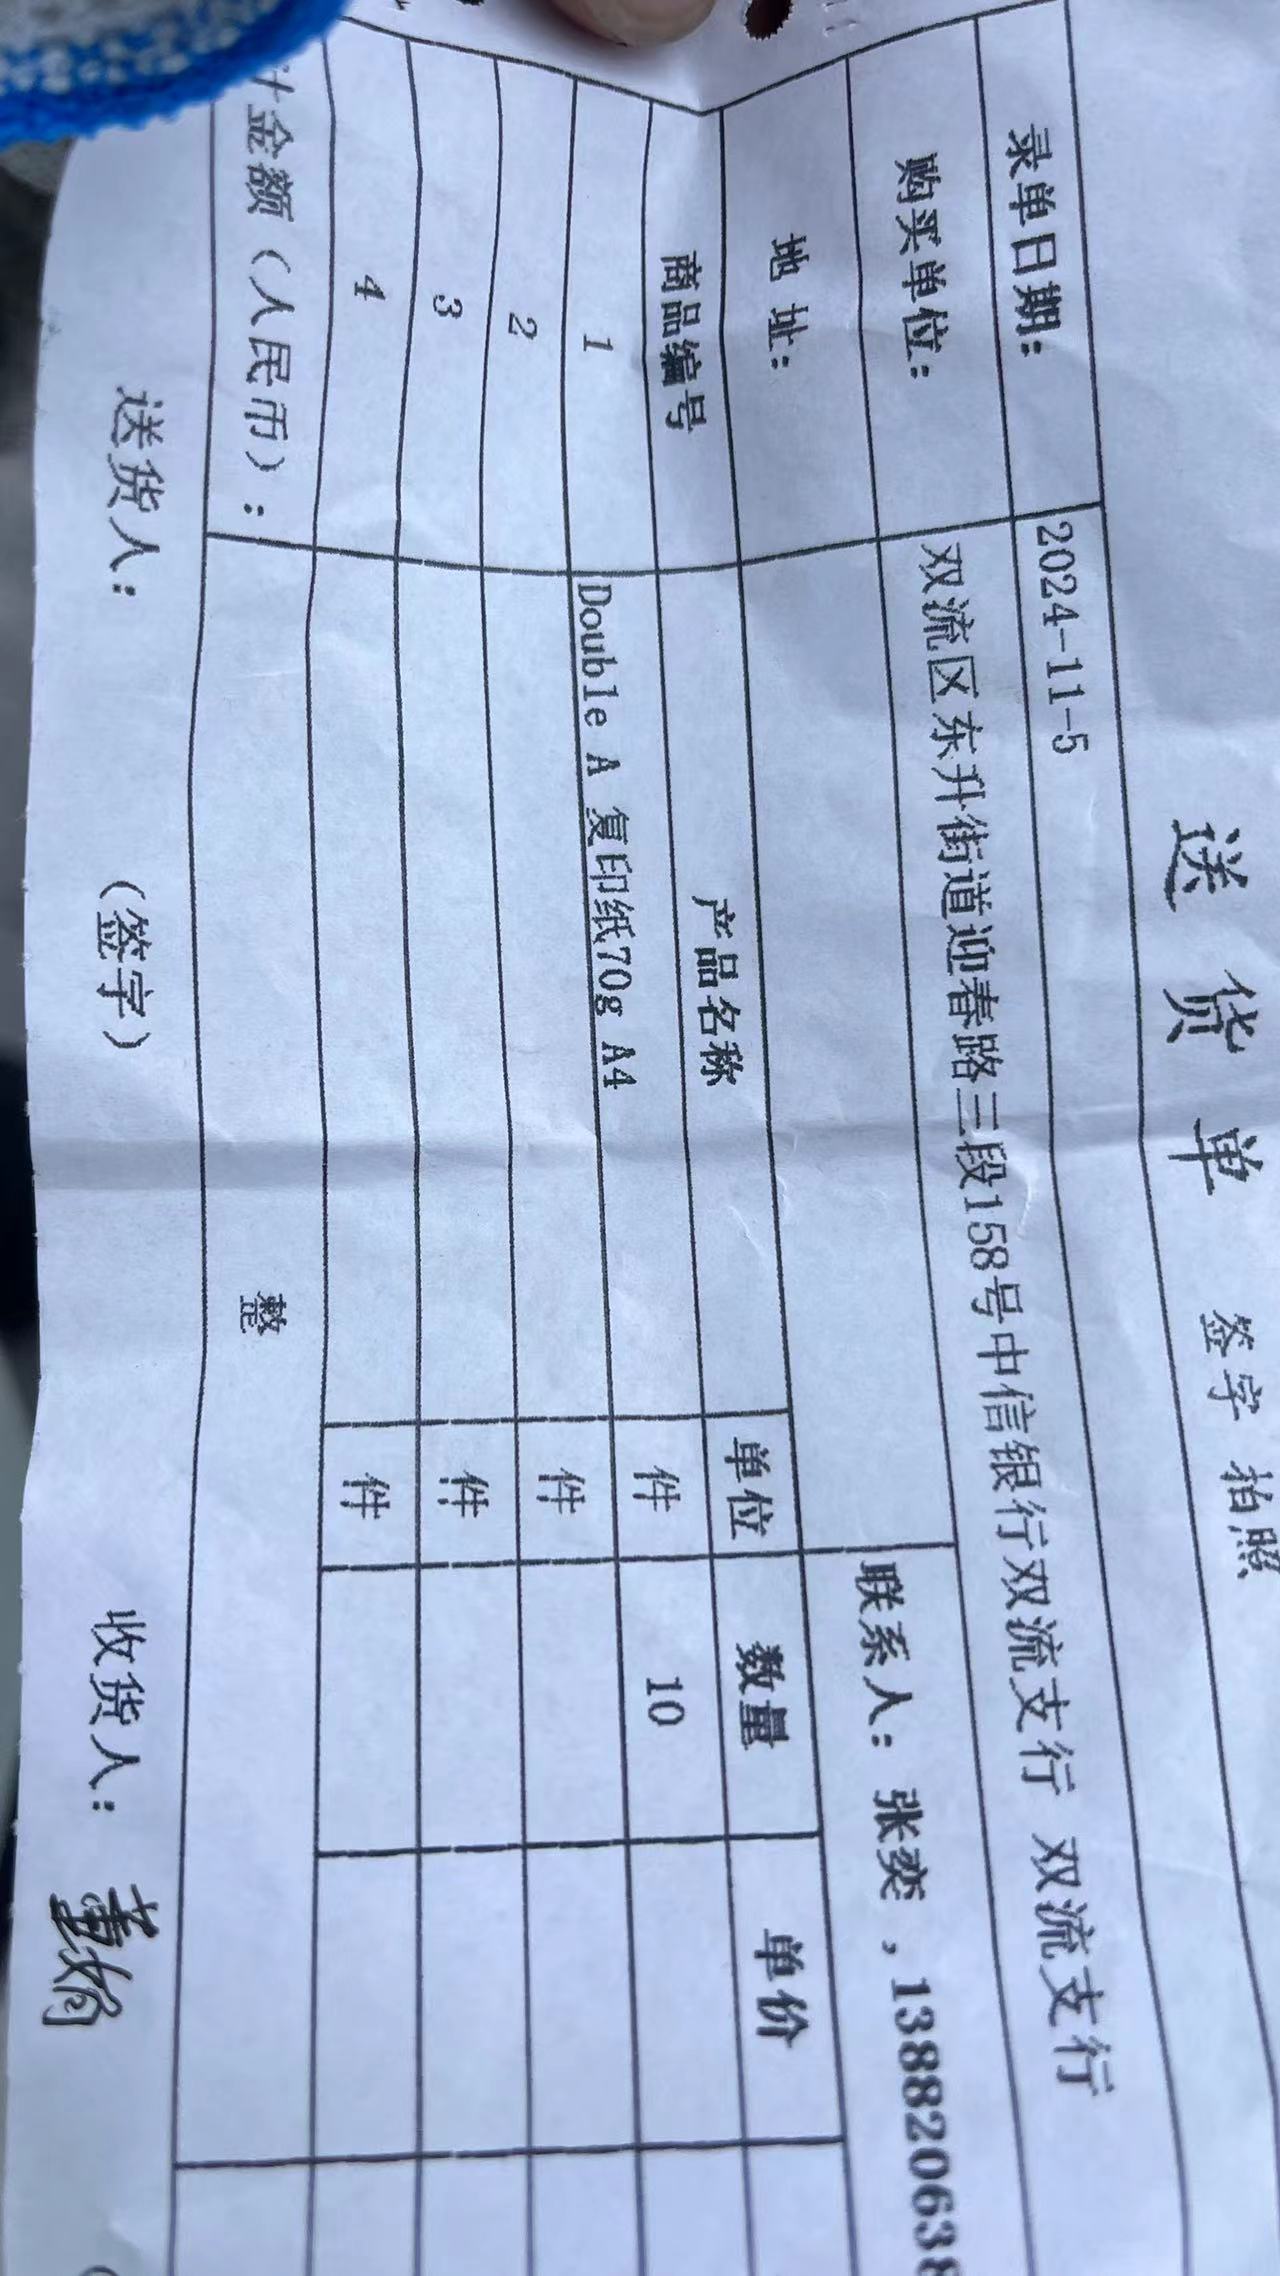 送 货 单 签字 拍照
录单日期: 2024-11-5
购买单位: 双流区东升街道迎春路三段158号中信银行双流支行 双流支行
地 址: 联系人: 张奕 ,138820638
商品编号 产品名称 单位 数量 单价
1 Double A 复印纸70g A4 件 10
2 件
3 件
4 件
计金额(人民币): 整
送货人: (签字) 收货人: 董娟